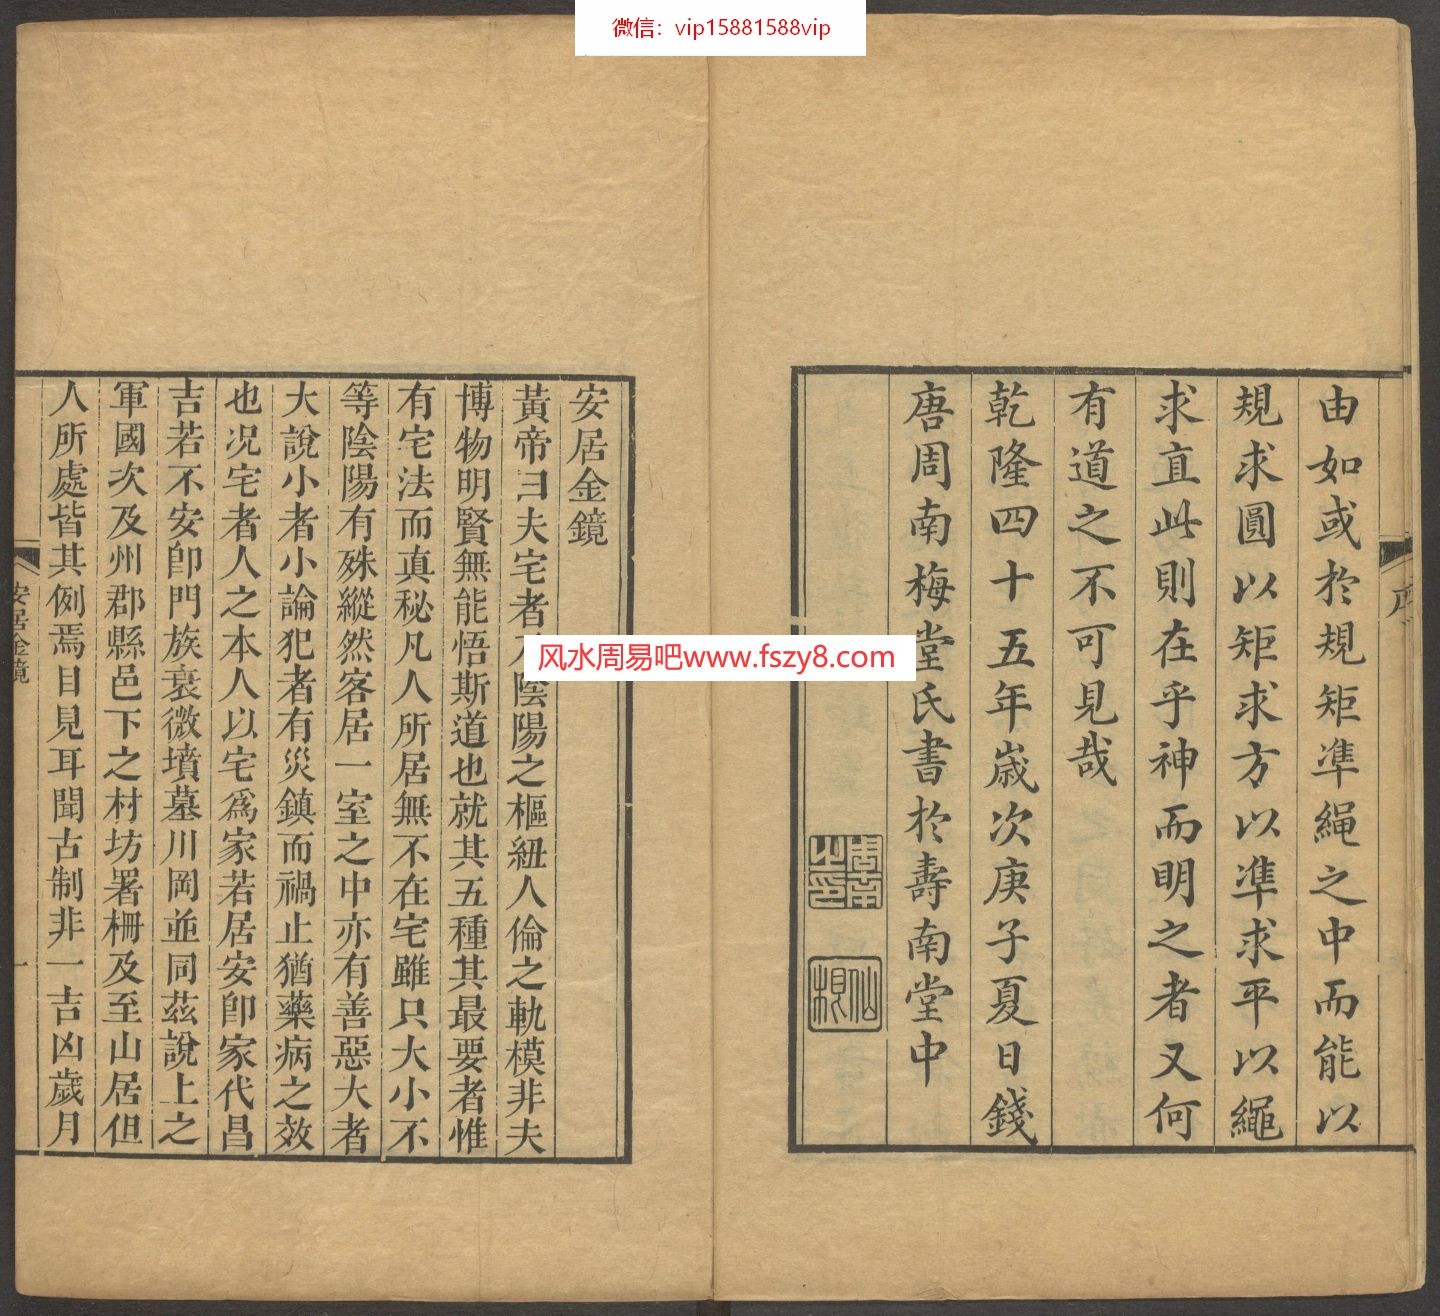 微信：vip15881588vip
由如或於規矩凖繩之中而能以
規求圓以矩求方以凖求平以繩
求直此則在乎神而明之者又何
有道之不可見哉
乾隆四十五年歲次庚子夏日錢
唐周南梅堂氏書於壽南堂中
周南之印
序
风水周易吧www.fszy8.com
安居金鏡
黃帝曰夫宅者乃陰陽之樞紐人倫之軌模非夫
博物明賢無能悟斯道也就其五種其最要者惟
有宅法而真秘凡人所居無不在宅雖只大小不
等陰陽有殊縱然客居一室之中亦有善惡大者
大說小者小論犯者有災鎮而禍止猶藥病之效
也况宅者人之本人以宅爲家若居安卽家代昌
吉若不安卽門族衰微墳墓川岡並同茲說上之
軍國次及州郡縣邑下之村坊署柵及至山居但
人所處皆其例焉目見耳聞古制非一吉凶歲月
安居金鏡
一